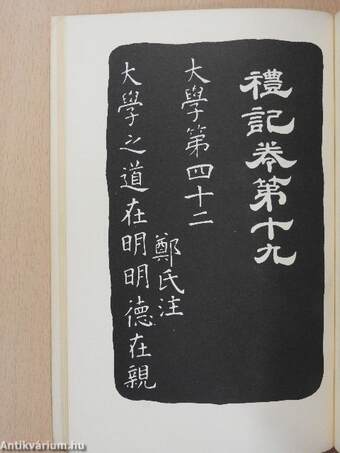 禮記卷第十九
大學第四十二
鄭氏注
大學之道在明明德在親
Antikvárium.hu